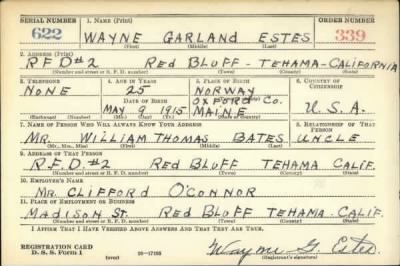 SERIAL NUMBER 1. NAME (Print) ORDER NUMBER
622 WAYNE GARLAND ESTES 339
(First) (Middle) (Last)
2. ADDRESS (Print)
R F D #2 RED BLUFF - TEHAMA - CALIFORNIA
(Number and street or R. F. D. number) (Town) (County) (State)
3. TELEPHONE 4. AGE IN YEARS 5. PLACE OF BIRTH 6. COUNTRY OF CITIZENSHIP
NONE 25 NORWAY
DATE OF BIRTH OXFORD Co. U.S.A.
MAY 8 1915 MAINE
(Mo.) (Day) (Yr.) (State or country)
7. NAME OF PERSON WHO WILL ALWAYS KNOW YOUR ADDRESS 8. RELATIONSHIP OF THAT PERSON
MR. WILLIAM THOMAS BATES UNCLE
(Mr., Mrs., Miss) (First) (Middle) (Last)
9. ADDRESS OF THAT PERSON
R.F.D. #2 RED BLUFF TEHAMA CALIF.
(Number and street or R. F. D. number) (Town) (County) (State)
10. EMPLOYER'S NAME
MR. CLIFFORD O'CONNOR
11. PLACE OF EMPLOYMENT OR BUSINESS
MADISON ST. RED BLUFF TEHAMA CALIF.
(Number and street or R. F. D. number) (Town) (County) (State)
I AFFIRM THAT I HAVE VERIFIED ABOVE ANSWERS AND THAT THEY ARE TRUE.
REGISTRATION CARD
D. S. S. Form 1 (over) 16-17105 Wayne G. Estes
(Registrant's signature)